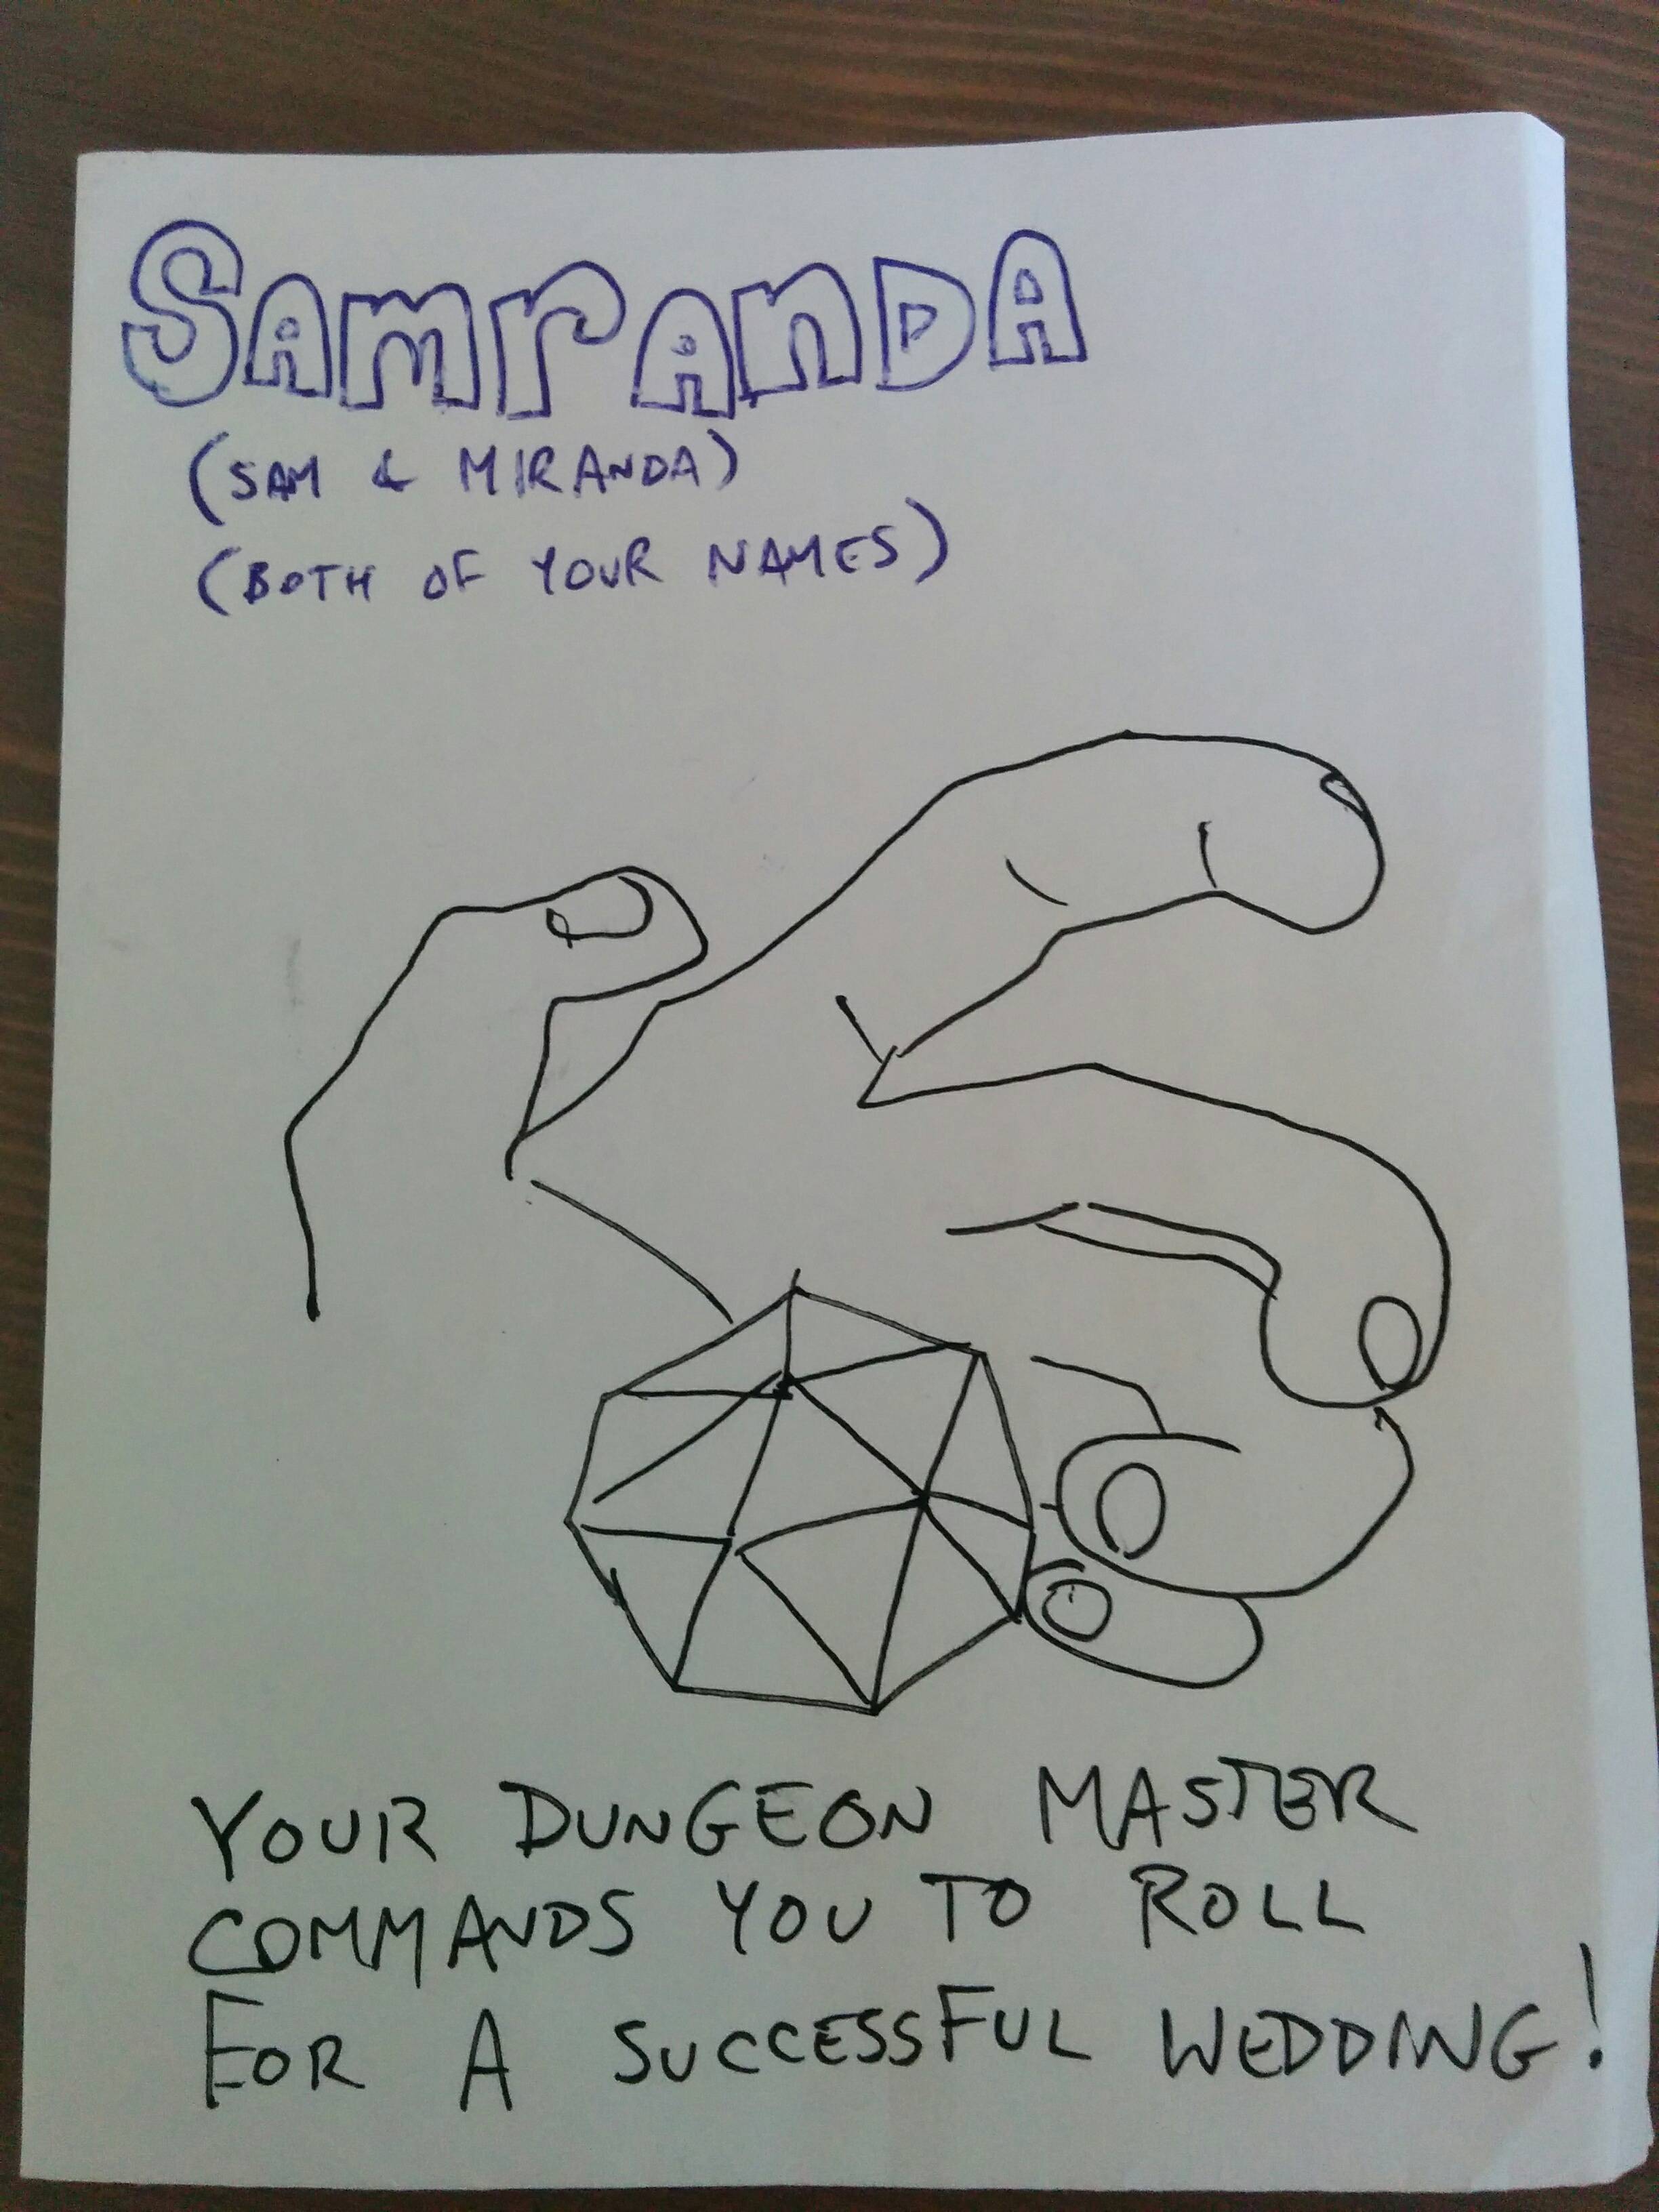 SAMrANDA
(SAM & MIRANDA)
(BOTH OF YOUR NAMES)
YOUR DUNGEON MASTER
COMMANDS YOU TO ROLL
FOR A SUCCESSFUL WEDDING!